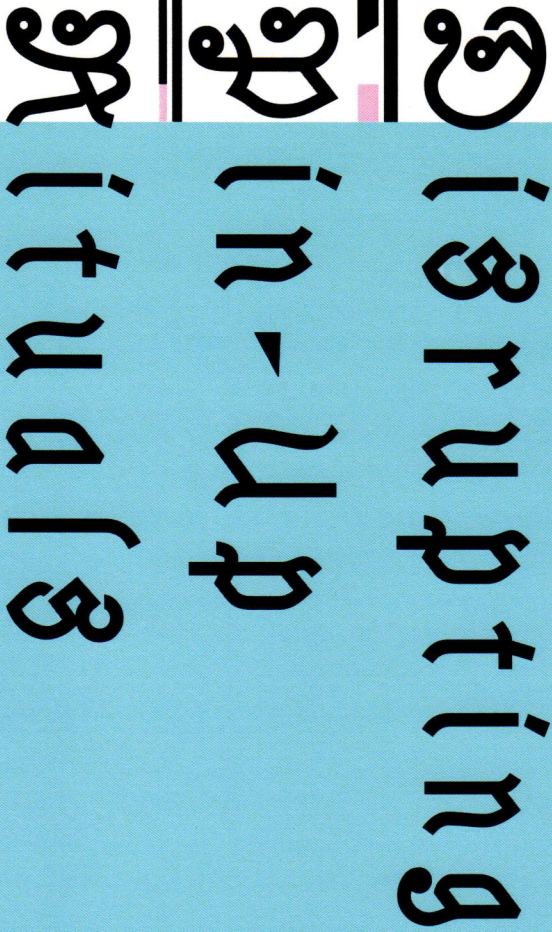 Disrupting
Pin-Up
Rituals